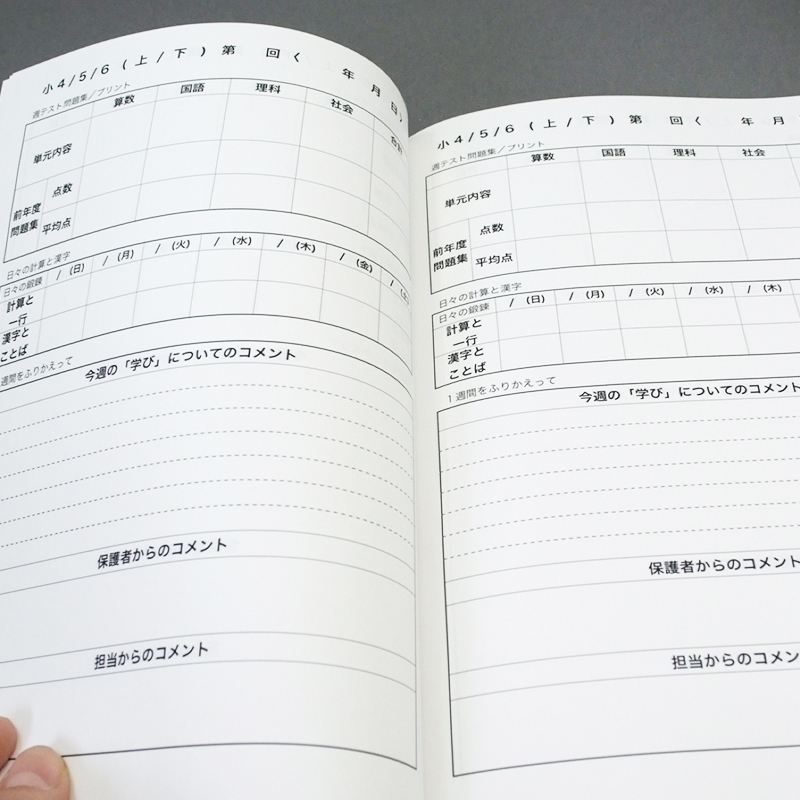 小4/5/6（上/下）第　回〈　年　月　日〉
週テスト問題集／プリント
算数　国語　理科　社会　合計
単元内容
前年度問題集　点数
平均点
日々の計算と漢字
日々の鍛錬　/（日）　/（月）　/（火）　/（水）　/（木）　/（金）　/（土
計算と
一行
漢字と
ことば
週間をふりかえって
今週の「学び」についてのコメント
保護者からのコメント
担当からのコメント
小4/5/6（上/下）第　回〈　年　月
週テスト問題集／プリント
算数　国語　理科　社会
単元内容
前年度問題集　点数
平均点
日々の計算と漢字
日々の鍛錬　/（日）　/（月）　/（火）　/（水）　/（木）
計算と
一行
漢字と
ことば
1週間をふりかえって
今週の「学び」についてのコメント
保護者からのコメント
担当からのコメン